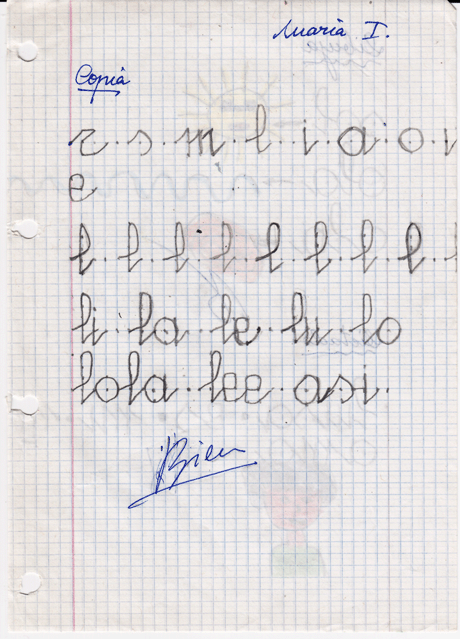 Maria I.
Copia
r . s . m . l . i . a . o . i
e
l . l . l . l . l . l . l . l . l
li . la . le . lu . lo
lola . lee . asi .
¡Bien